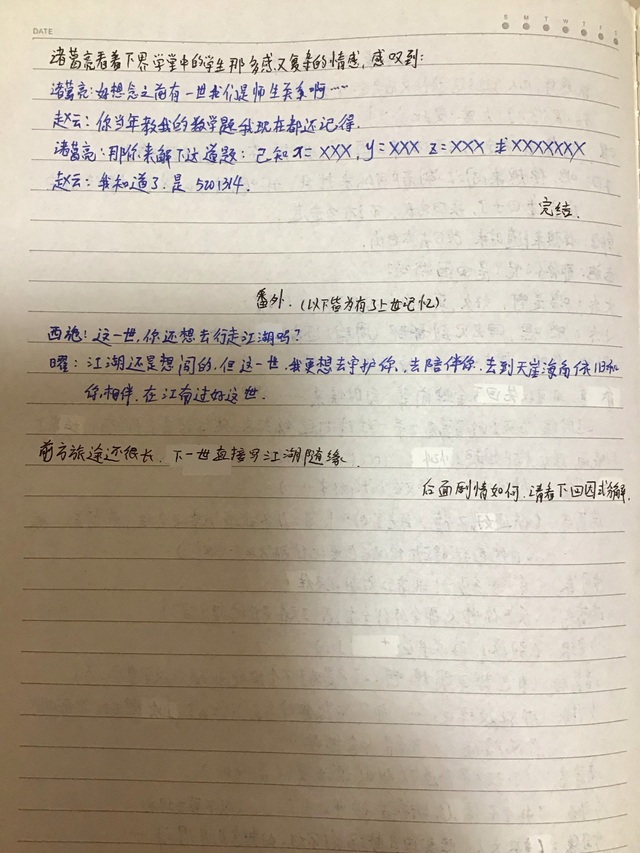 DATE
S M T W T F S
诸葛亮看着下界学堂中的学生那多感又复杂的情感,感叹到:
诸葛亮:好想念之前有一世我们是师生关系啊……
赵云:你当年教我的数学题我现在都还记得.
诸葛亮:用你来解下这道题:已知x=XXX,y=XXX z=XXX 求XXXXXXX
赵云:我知道了.是5201314.
完结.
番外.(以下皆为有了上世记忆)
西施:这一世,你还想去行走江湖吗?
曜:江湖还是想闯的,但这一世,我更想去守护你,去陪伴你,去到天涯海角依旧和
你相伴,在江南过好这世.
前方旅途还很长,下一世直接写江湖随缘.
后面剧情如何,请看下回因式分解.